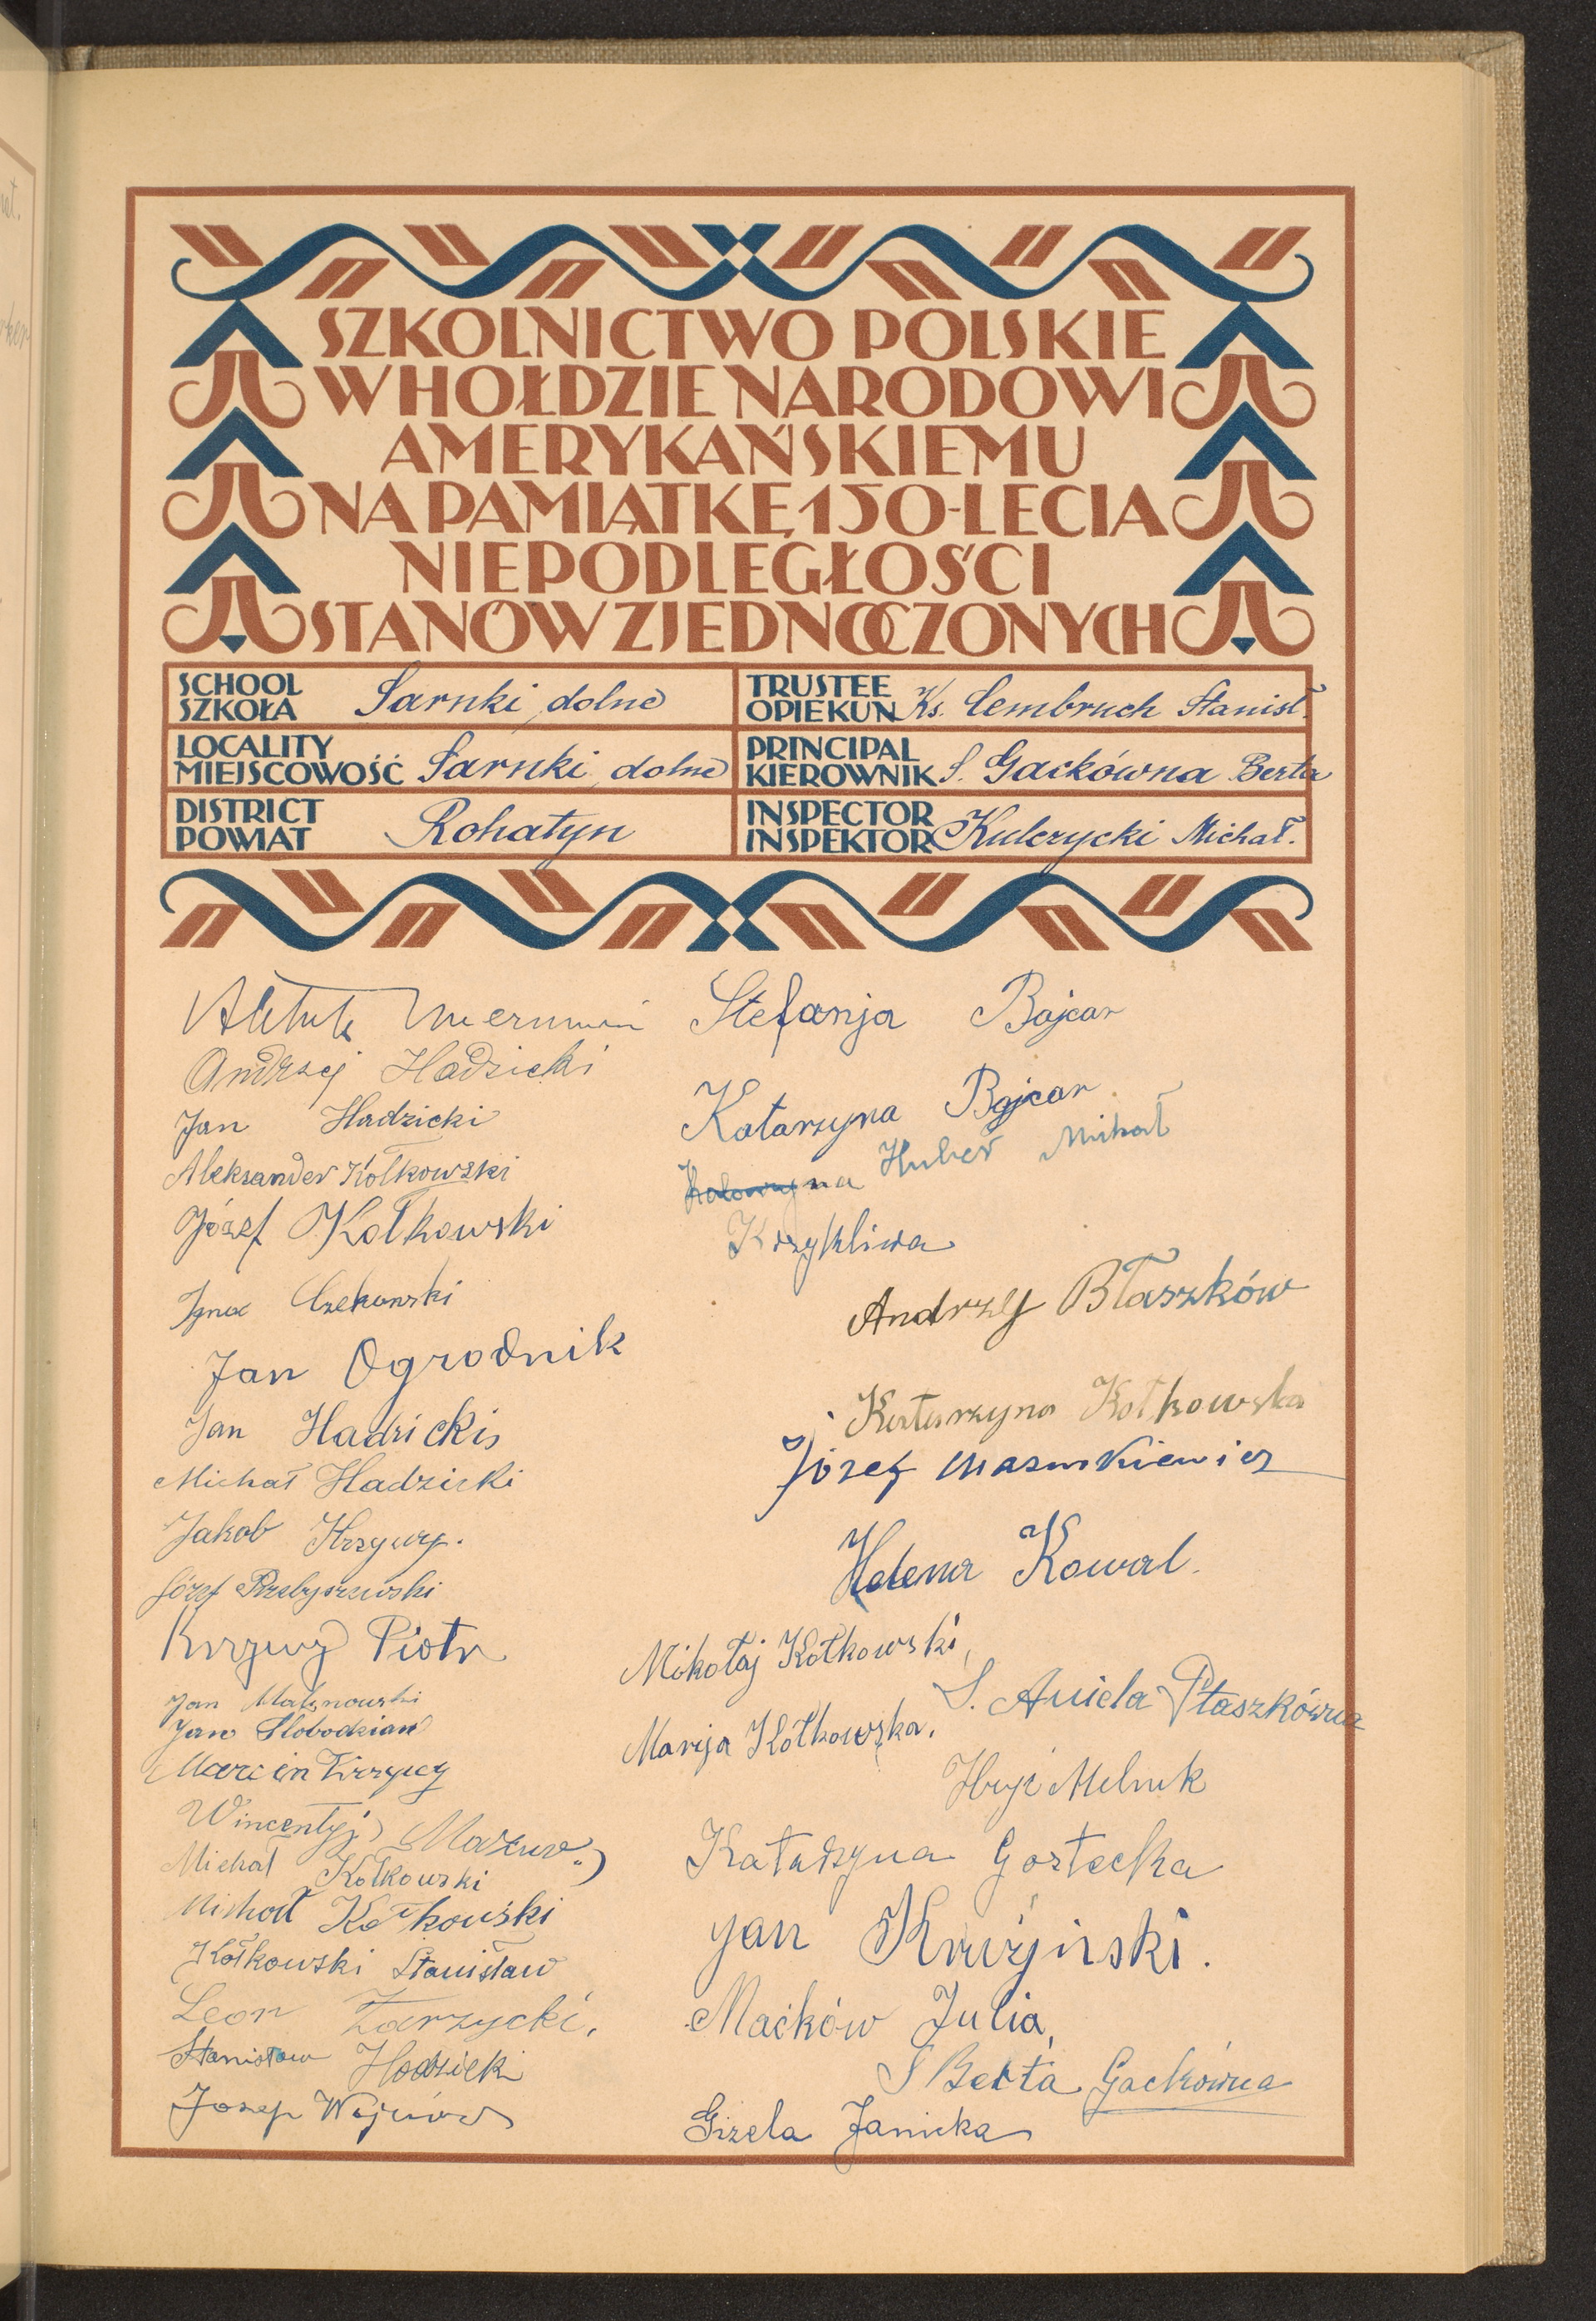 SZKOLNICTWO POLSKIE
W HOŁDZIE NARODOWI
AMERYKAŃSKIEMU
NA PAMIĄTKĘ 150-LECIA
NIEPODLEGŁOŚCI
STANÓW ZJEDNOCZONYCH
SCHOOL
SZKOŁA Sarnki dolne
TRUSTEE
OPIEKUN Ks. Cembruch Stanisł.
LOCALITY
MIEJSCOWOŚĆ Sarnki dolne
PRINCIPAL
KIEROWNIK S. Gackówna Berta
DISTRICT
POWIAT Rohatyn
INSPECTOR
INSPEKTOR Kulczycki Michał.
Andrzej Hadzicki
Jan Hadzicki
Aleksander Kołkowski
Józef Kołkowski
Czekanski
Jan Ogrodnik
Jan Hadzickis
Michał Hadzicki
Jakob
Józef Przebyszewski
Krzywy Piotr
Jan Malynowski
Jan Slobodzian
Marcin Krzywy
Wincentyj Mazur
Michał Kołkowski
Michał Kołkowski
Kołkowski Stanisław
Leon Zarzycki.
Stanisław Hadzicki
Josep Wojców
Stefanja Bojcar
Katarzyna Bojcar
Huber Michał
Krzykliwa
Andrzej Błaszków
Katarzyna Kołkowska
Józef
Helena Kowal.
Mikołaj Kołkowski,
S. Aniela Ptaszkówna
Marija Kołkowska.
Melnuk
Katarzyna Gostecka
Jan
Maćków Julia,
S Berta Gackówna
Gizela Janicka